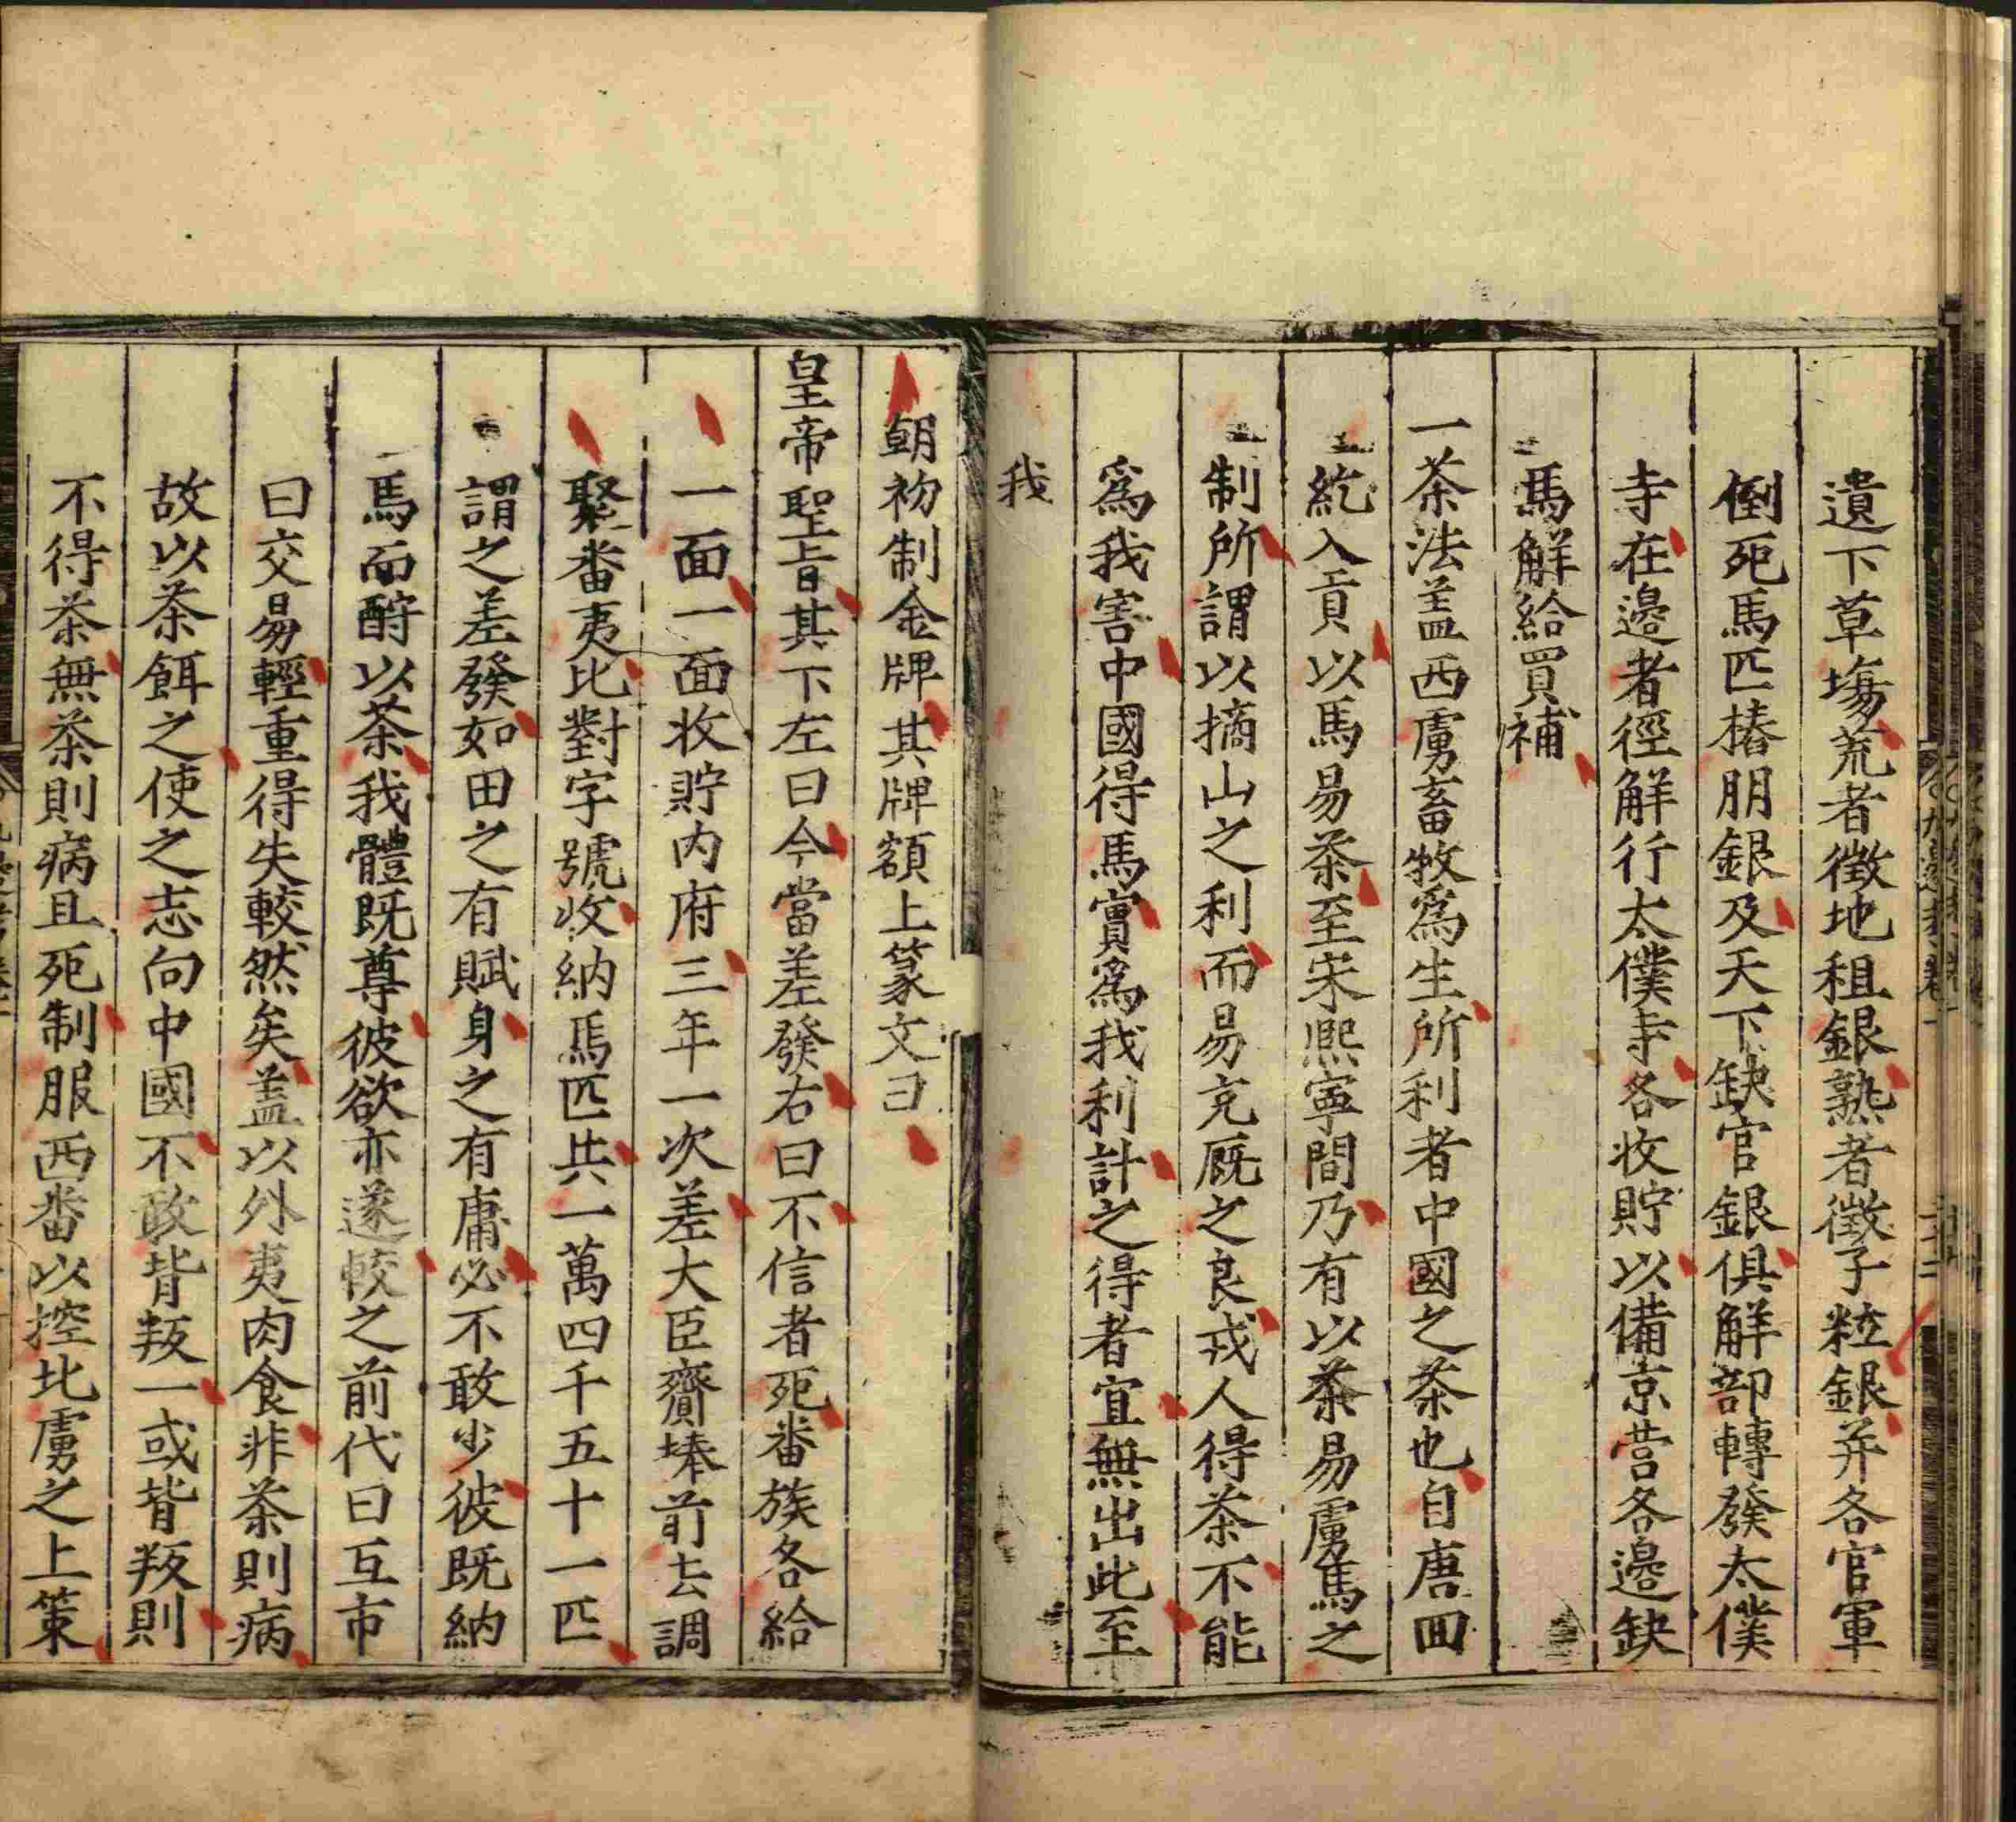 遺下草塲荒者徵地租銀熟者徵子粒銀并各官軍
倒死馬匹樁朋銀及天下缺官銀俱解部轉發太僕
寺在邊者徑解行太僕寺各收貯以備京营各邊缺
馬解給買補
一茶法盖西虜畜牧爲生所利者中國之茶也自唐回
紇入貢以馬易茶至宋熙寕間乃有以茶易虜馬之
制所謂以摘山之利而易充厩之良戎人得茶不能
爲我害中國得馬實爲我利計之得者宜無出此至
我
朝初制金牌其牌額上篆文曰
皇帝聖旨其下左曰今當差發右曰不信者死番族各給
一面一面收貯内府三年一次差大臣齎捧前去調
聚番夷比對字號收納馬匹共一萬四千五十一匹
謂之差發如田之有賦身之有庸必不敢少彼既納
馬而酧以茶我體既尊彼欲亦遂較之前代曰互市
曰交易輕重得失較然矣盖以外夷肉食非茶則病
故以茶餌之使之志向中國不敢背叛一或背叛則
不得茶無茶則病且死制服西番以控北虜之上策